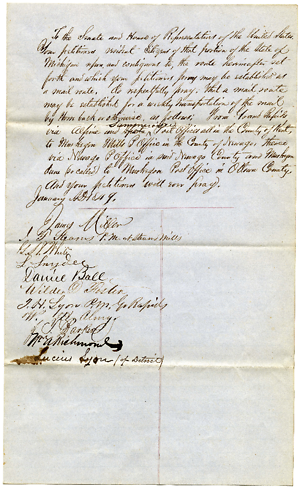 To the Senate and House of Representatives of the United States
Your petitioners resident Citizens of that portion of the State of
Michigan upon and contiguous to, the route hereinafter set
forth and which your petitioners pray may be established as
a mail route. Do respectfully pray, that a mail route
may be established for a weekly transportation of the mail
by Horse back or otherwise, as follows; From Grand Rapids
via Alpine and Post Offices all in the County of Kent,
to Muskegon Mills P. Office in the County of Newaygo, thence
via Newaygo P Office in said Newaygo County and Muskegon
(so called) to Muskegon Post Office in Ottawa County,
And your petitioners will ever pray.
January 1849.
James Miller
P.M. at Mills
White
L. Snyder
Daniel Ball
Wilder D. Foster
T. H. Lyon P.M. G. Rapids
W. Almy
Wm A Richmond
Lucius Lyon (of Detroit)